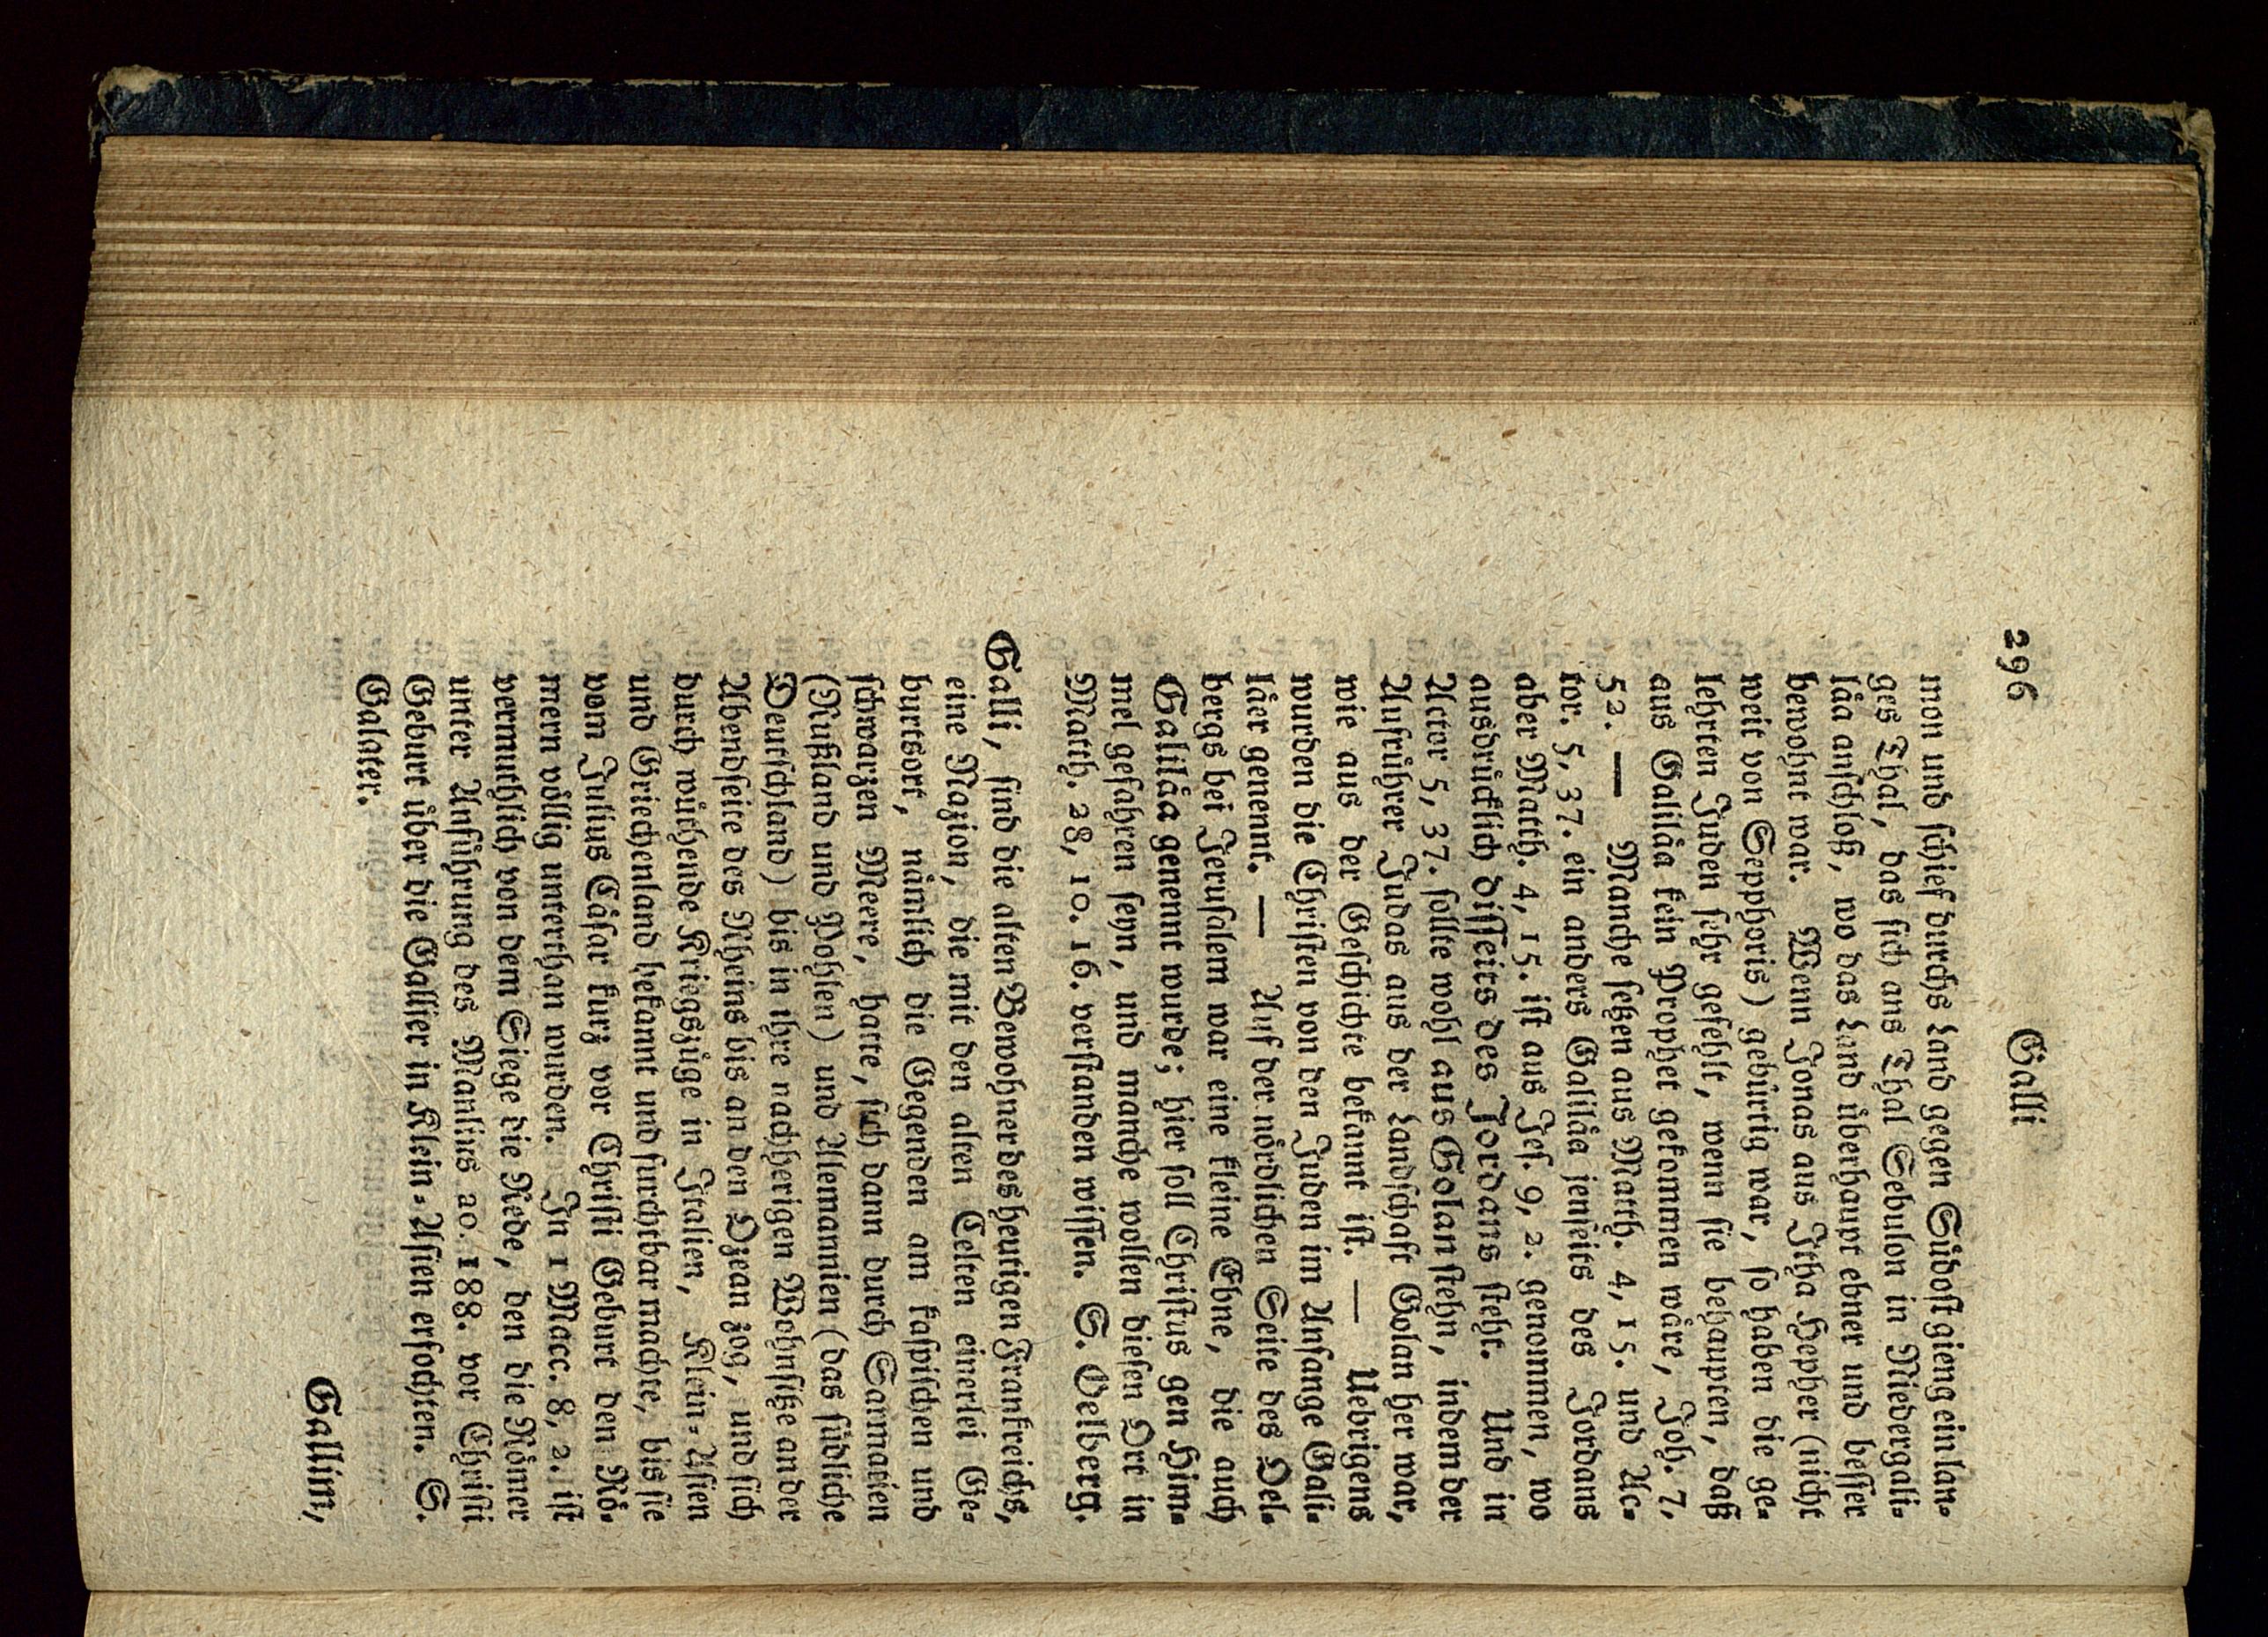 296 Galli
mon und schief durchs Land gegen Südost gieng ein lan-
ges Thal, das sich ans Thal Sebulon in Niedergali-
läa anschloß, wo das Land überhaupt ebner und besser
bewohnt war. Wenn Jonas aus Ittha Hepher (nicht
weit von Sepphoris) gebürtig war, so haben die ge-
lehrten Juden sehr gefehlt, wenn sie behaupten, daß
aus Galiläa kein Prophet gekommen wäre, Joh. 7,
52. — Manche setzen aus Matth. 4, 15. und Ac-
tor. 5, 37. ein anders Galiläa jenseits des Jordans
aber Matth. 4, 15. ist aus Jes. 9, 2. genommen, wo
ausdrücklich disseits des Jordans steht. Und in
Actor 5, 37. sollte wohl aus Golan stehn, indem der
Aufrührer Judas aus der Landschaft Golan her war,
wie aus der Geschichte bekannt ist. — Uebrigens
wurden die Christen von den Juden im Anfange Gali-
läer genennt. — Auf der nördlichen Seite des Oel-
bergs bei Jerusalem war eine kleine Ebne, die auch
Galiläa genennt wurde; hier soll Christus gen Him-
mel gefahren seyn, und manche wollen diesen Ort in
Matth. 28, 10. 16. verstanden wissen. S. Oelberg.
Galli, sind die alten Bewohner des heutigen Frankreichs,
eine Nazion, die mit den alten Celten einerlei Ge-
burtsort, nämlich die Gegenden am kaspischen und
schwarzen Meere, hatte, sich dann durch Sarmatien
(Rußland und Pohlen) und Alemannien (das südliche
Deutschland) bis in ihre nachherigen Wohnsitze an der
Abendseite des Rheins bis an den Ozean zog, und sich
durch wüthende Kriegszüge in Italien, Klein-Asien
und Griechenland bekannt und furchtbar machte, bis sie
vom Julius Cäsar kurz vor Christi Geburt den Rö-
mern völlig unterthan wurden. In 1 Macc. 8, 2. ist
vermuthlich von dem Siege die Rede, den die Römer
unter Anführung des Manlius ao. 188. vor Christi
Geburt über die Gallier in Klein-Asien erfochten. S.
Galater.
Gallim,